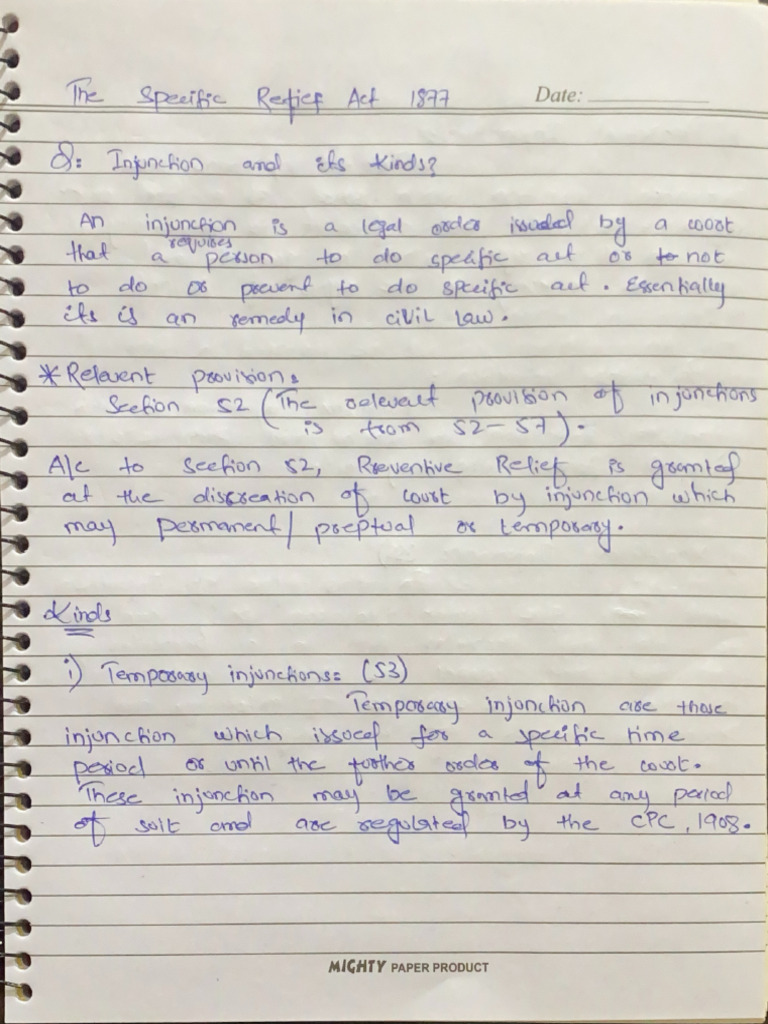 The Specific Relief Act 1877 Date:
Q: Injunction and its kinds?
An injunction is a legal order issuded by a court
that a requires person to do specific act or to not
to do or prevent to do specific act. Essentially
its is an remedy in civil law.
* Relevent provision:
Section 52 (The relevant provision of injunctions
is from 52-57).
A/c to section 52, Preventive Relief is granted
at the discreation of court by injunction which
may permanent/ preptual or temporary.
Kinds
i) Temporary injunctions: (53)
Temporary injunction are those
injunction which issued for a specific time
period or until the further order of the court.
These injunction may be granted at any period
of suit and are regulated by the CPC, 1908.
MIGHTY PAPER PRODUCT